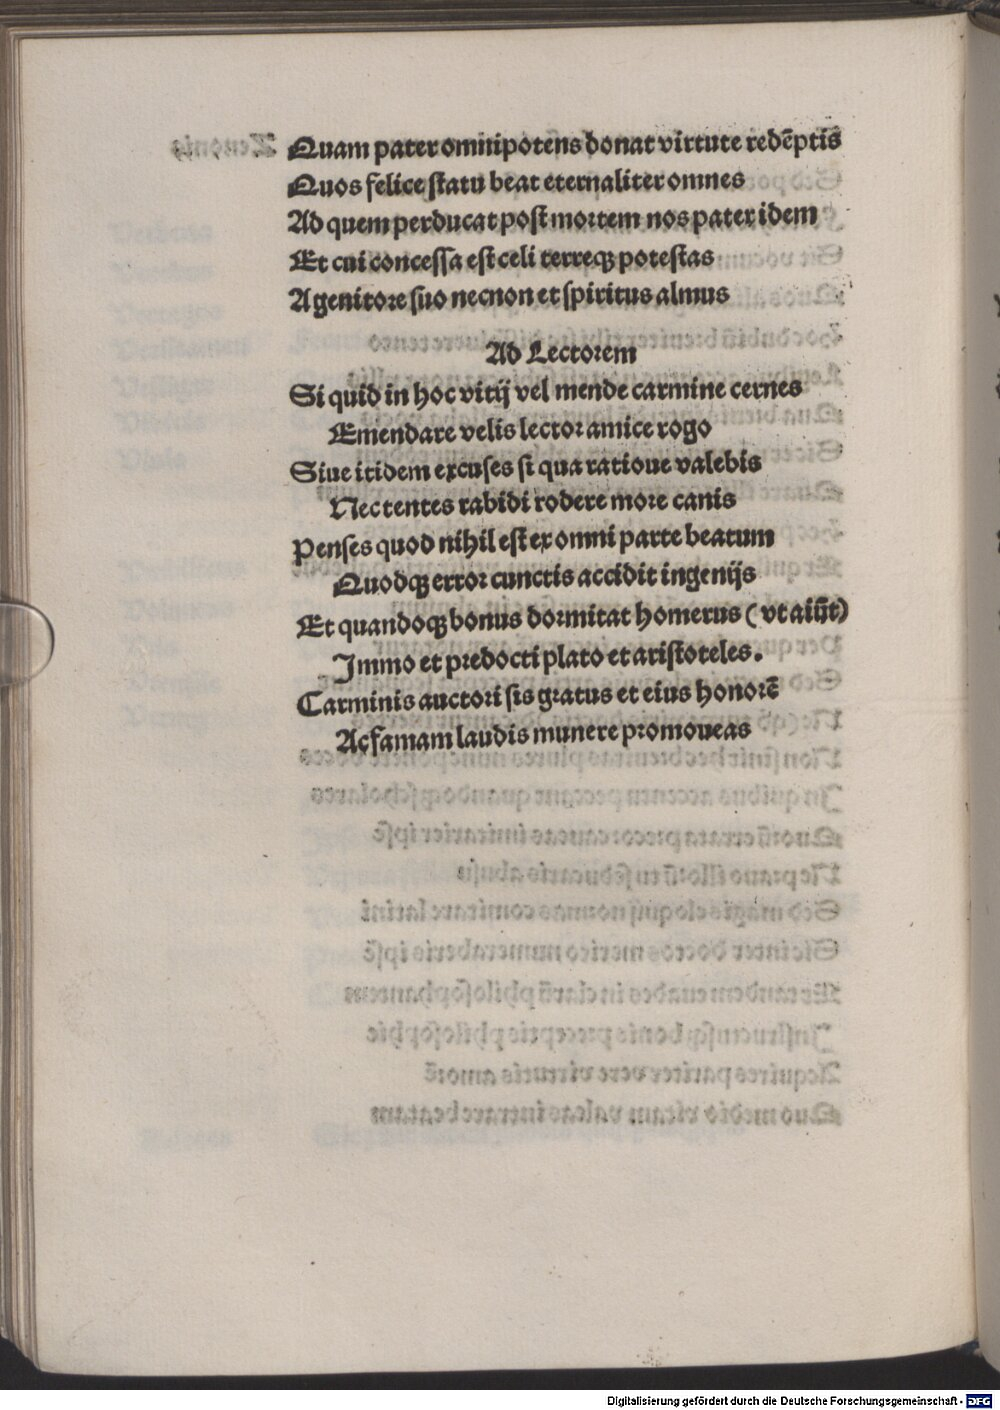 Quam pater omnipotens donat virtute redẽptis
Quos felice statu beat eternaliter omnes
Ad quem perducat post mortem nos pater idem
Et cui concessa est celi terreqꝫ potestas
A genitore suo necnon et spiritus almus
Ad Lectorem
Si quid in hoc vitij vel mende carmine cernes
Emendare velis lector amice rogo
Siue itidem excuses si qua ratioue valebis
Nec tentes rabidi rodere more canis
Penses quod nihil est ex omni parte beatum
Quodqꝫ error cunctis accidit ingenijs
Et quandoqꝫ bonus dormitat homerus (vt aiũt)
Immo et predocti plato et aristoteles.
Carminis auctori sis gratus et eius honorẽ
Ac famam laudis munere promoueas
Digitalisierung gefördert durch die Deutsche Forschungsgemeinschaft - DFG